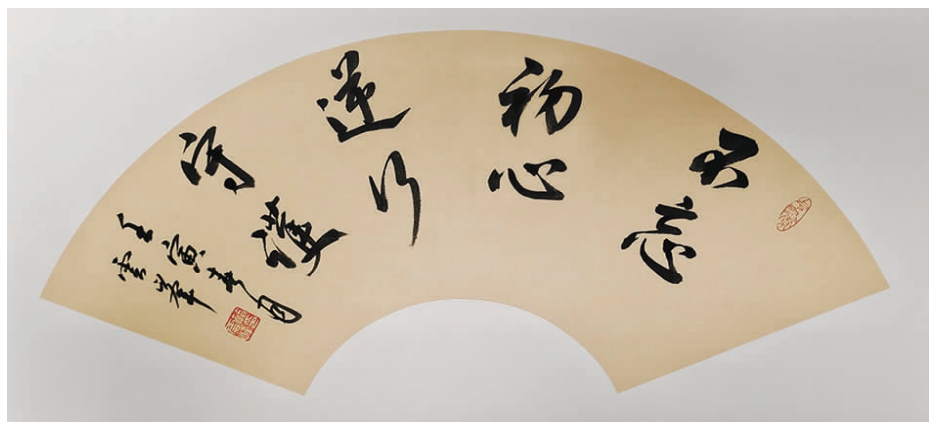 不忘
初心
逆行
守護
壬寅春月
雲峯